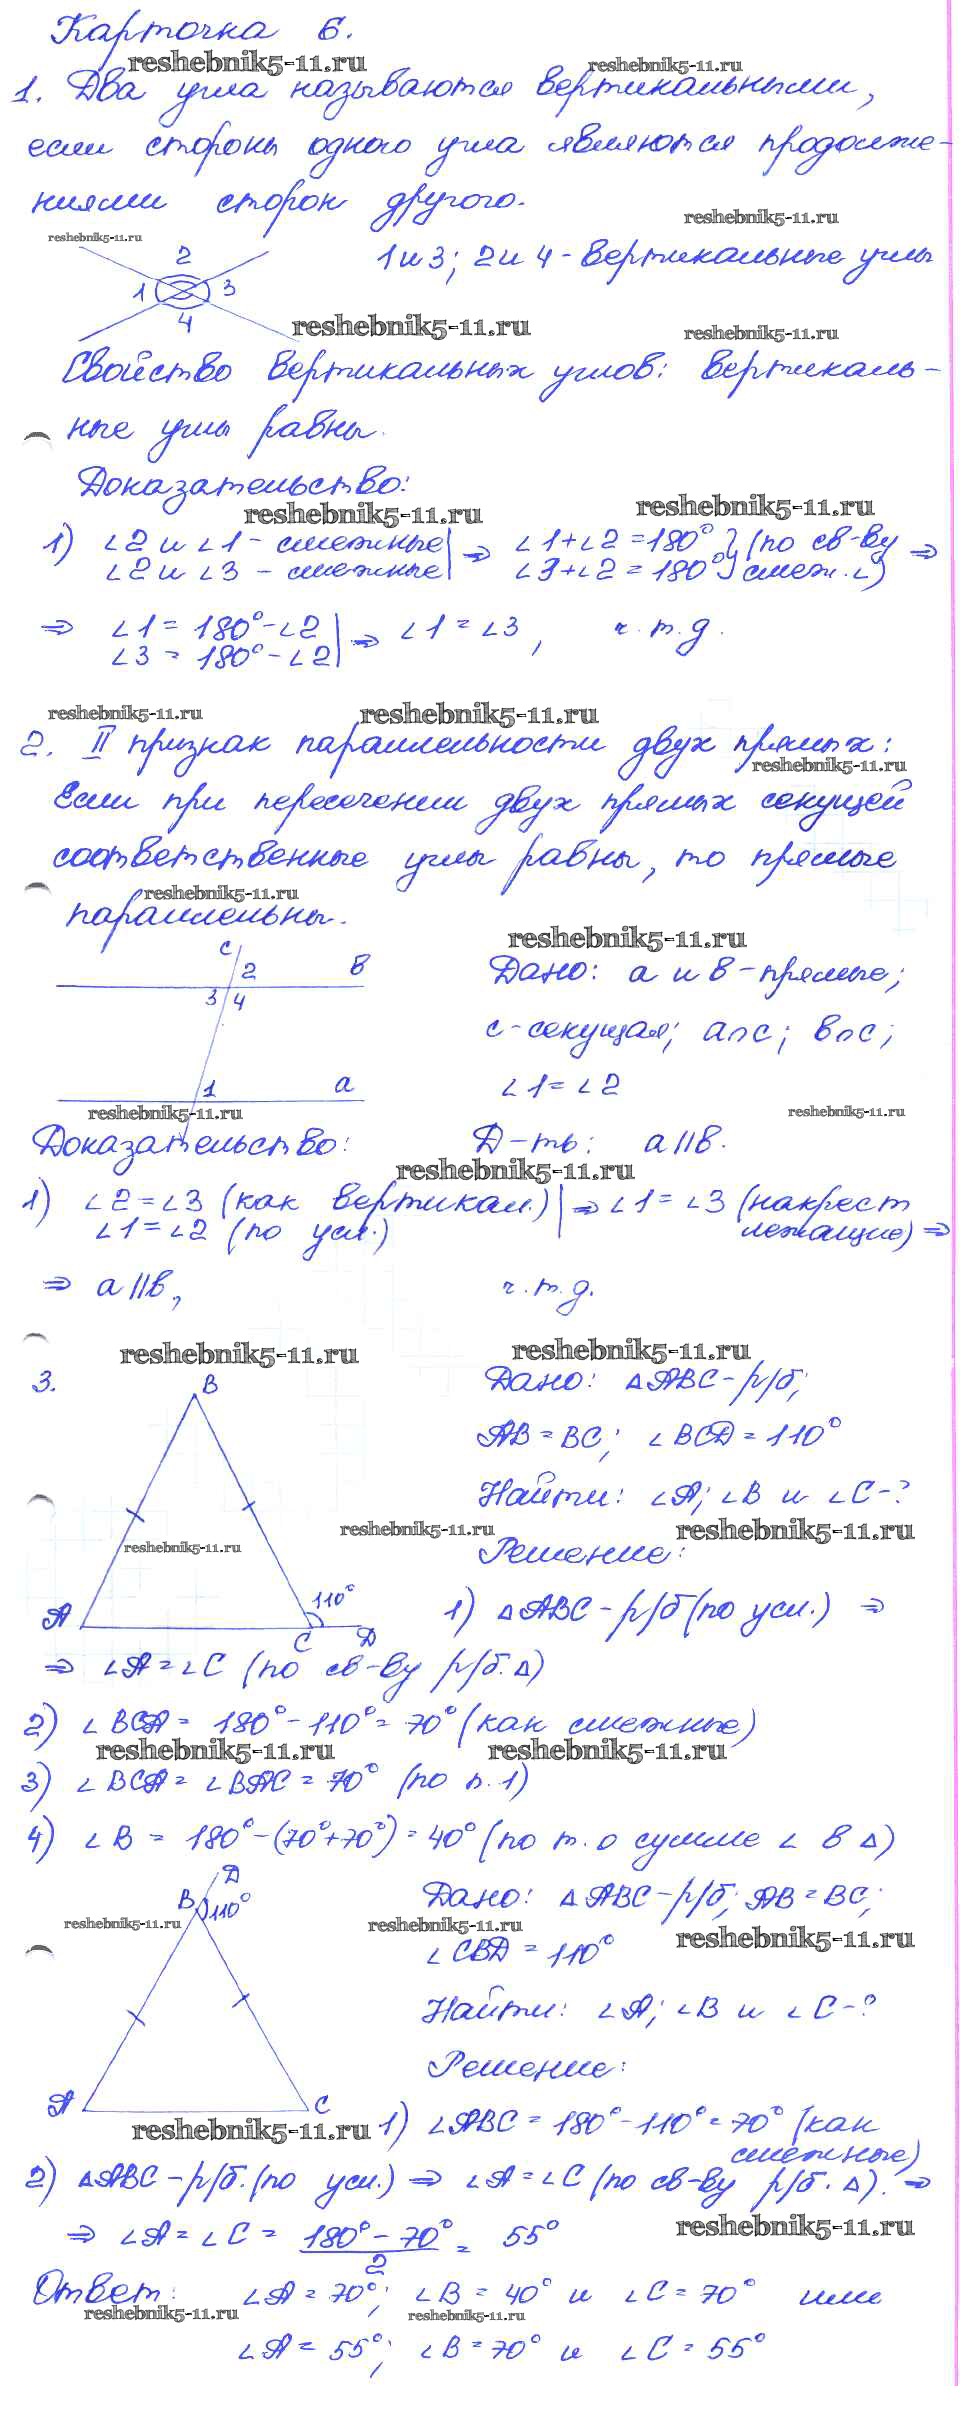 Карточка 6.
reshebnik5-11.ru reshebnik5-11.ru
1. Два угла называются вертикальными,
если стороны одного угла являются продолже-
ниями сторон другого.
reshebnik5-11.ru
reshebnik5-11.ru
1 и 3; 2 и 4 - вертикальные углы
2
1 3
4
reshebnik5-11.ru reshebnik5-11.ru
Свойство вертикальных углов: вертикаль-
ные углы равны.
Доказательство:
reshebnik5-11.ru reshebnik5-11.ru
1) ∠2 и ∠1 - смежные | ⇒ ∠1+∠2=180° } (по св-ву ⇒
∠2 и ∠3 - смежные | ∠3+∠2=180° } смеж.∠)
⇒ ∠1 = 180°-∠2 | ⇒ ∠1 = ∠3, ч.т.д.
∠3 = 180°-∠2 |
reshebnik5-11.ru reshebnik5-11.ru
2. II признак параллельности двух прямых:
reshebnik5-11.ru
Если при пересечении двух прямых секущей
соответственные углы равны, то прямые
reshebnik5-11.ru
параллельны.
reshebnik5-11.ru
c
2 в
3 4
1 а
Дано: а и в - прямые;
с - секущая; а∩с; в∩с;
∠1 = ∠2
reshebnik5-11.ru reshebnik5-11.ru
Доказательство: Д-ть: а||в.
reshebnik5-11.ru
1) ∠2=∠3 (как вертикал.) | ⇒ ∠1=∠3 (накрест
∠1=∠2 (по усл.) | лежащие) ⇒
⇒ а||в, ч.т.д.
reshebnik5-11.ru reshebnik5-11.ru
3.
B
A
C
D
110°
Дано: △ABC - р/б;
AB = BC; ∠BCD = 110°
Найти: ∠A; ∠B и ∠C - ?
reshebnik5-11.ru reshebnik5-11.ru
reshebnik5-11.ru
Решение:
1) △ABC - р/б (по усл.) ⇒
⇒ ∠A = ∠C (по св-ву р/б. △)
2) ∠BCA = 180°-110° = 70° (как смежные)
reshebnik5-11.ru reshebnik5-11.ru
3) ∠BCA = ∠BAC = 70° (по п.1)
4) ∠B = 180°-(70°+70°) = 40° (по т. о сумме ∠ в △)
D
B 110°
A
C
Дано: △ABC - р/б; AB = BC;
reshebnik5-11.ru reshebnik5-11.ru reshebnik5-11.ru
∠CBD = 110°
Найти: ∠A; ∠B и ∠C - ?
Решение:
reshebnik5-11.ru
1) ∠ABC = 180°-110° = 70° (как
смежные)
2) △ABC - р/б. (по усл.) ⇒ ∠A = ∠C (по св-ву р/б. △). ⇒
reshebnik5-11.ru
⇒ ∠A = ∠C = 180°-70° / 2 = 55°
Ответ: ∠A = 70°; ∠B = 40° и ∠C = 70° или
reshebnik5-11.ru reshebnik5-11.ru
∠A = 55°; ∠B = 70° и ∠C = 55°